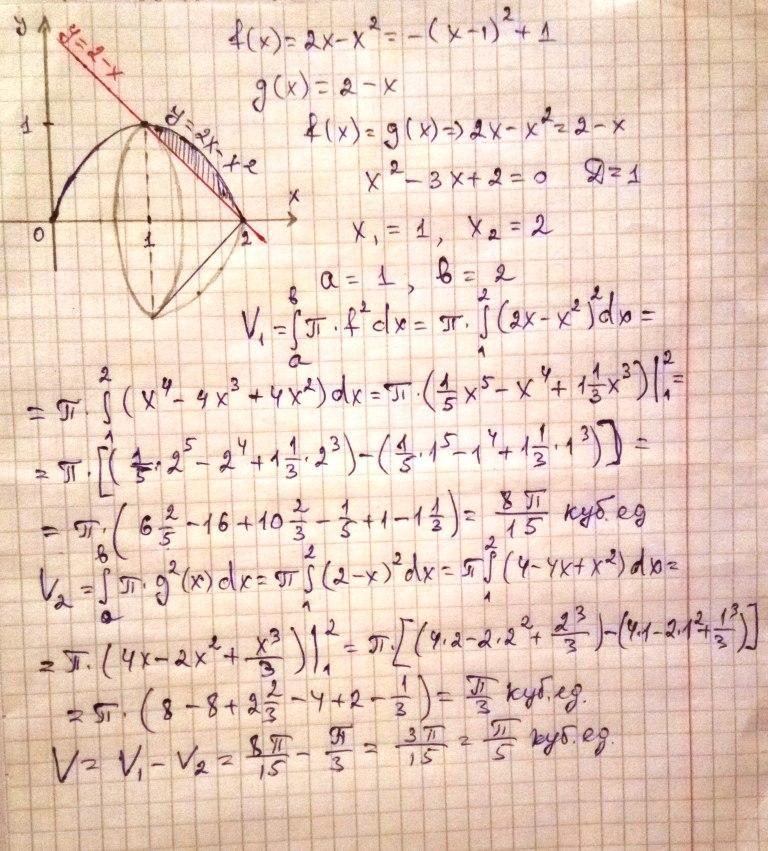 y
f(x) = 2x - x² = -(x-1)² + 1
y = 2 - x
g(x) = 2 - x
1
y = 2x - x²
f(x) = g(x) ⇒ 2x - x² = 2 - x
x² - 3x + 2 = 0 D = 1
x
0 1 2
x₁ = 1, x₂ = 2
a = 1, в = 2
V₁ = ∫ₐᵇ π · f² dx = π · ∫₁² (2x - x²)² dx =
= π · ∫₁² (x⁴ - 4x³ + 4x²) dx = π · (1/5 x⁵ - x⁴ + 1 1/3 x³) |₁² =
= π · [(1/5 · 2⁵ - 2⁴ + 1 1/3 · 2³) - (1/5 · 1⁵ - 1⁴ + 1 1/3 · 1³)] =
= π · (6 2/5 - 16 + 10 2/3 - 1/5 + 1 - 1 1/3) = 8π/15 куб. ед
V₂ = ∫ₐᵇ π · g²(x) dx = π ∫₁² (2-x)² dx = π ∫₁² (4 - 4x + x²) dx =
= π · (4x - 2x² + x³/3) |₁² = π · [(4·2 - 2·2² + 2³/3) - (4·1 - 2·1² + 1³/3)]
= π · (8 - 8 + 2 2/3 - 4 + 2 - 1/3) = π/3 куб. ед.
V = V₁ - V₂ = 8π/15 - π/3 = 3π/15 = π/5 куб. ед.